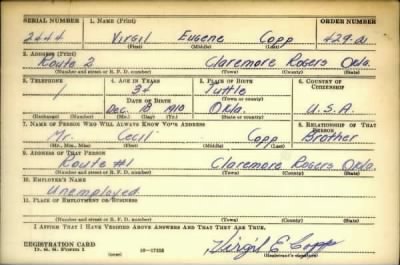 SERIAL NUMBER 1. NAME (Print) ORDER NUMBER
2444 Virgil Eugene Copp 429-A
(First) (Middle) (Last)
2. ADDRESS (Print)
Route 2 Claremore Rogers Okla.
(Number and street or R. F. D. number) (Town) (County) (State)
3. TELEPHONE 4. AGE IN YEARS 5. PLACE OF BIRTH 6. COUNTRY OF CITIZENSHIP
/ Tuttle
DATE OF BIRTH (Town or county)
Dec. 1910 Okla. U.S.A.
(Exchange) (Number) (Mo.) (Day) (Yr.) (State or country)
7. NAME OF PERSON WHO WILL ALWAYS KNOW YOUR ADDRESS 8. RELATIONSHIP OF THAT PERSON
Mr. Cecil Copp Brother
(Mr., Mrs., Miss) (First) (Middle) (Last)
9. ADDRESS OF THAT PERSON
Route #1 Claremore Rogers Okla.
(Number and street or R. F. D. number) (Town) (County) (State)
10. EMPLOYER'S NAME
Unemployed
11. PLACE OF EMPLOYMENT OR BUSINESS
(Number and street or R. F. D. number) (Town) (County) (State)
I AFFIRM THAT I HAVE VERIFIED ABOVE ANSWERS AND THAT THEY ARE TRUE.
REGISTRATION CARD
D. S. S. Form 1 16-17105 Virgil E Copp
(over) (Registrant's signature)